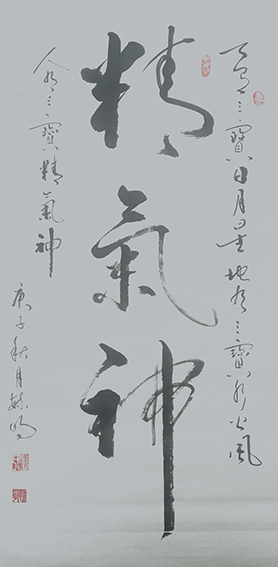 精氣神
天有三寶日月星地有三寶水火風
人有三寶精氣神
庚子秋月